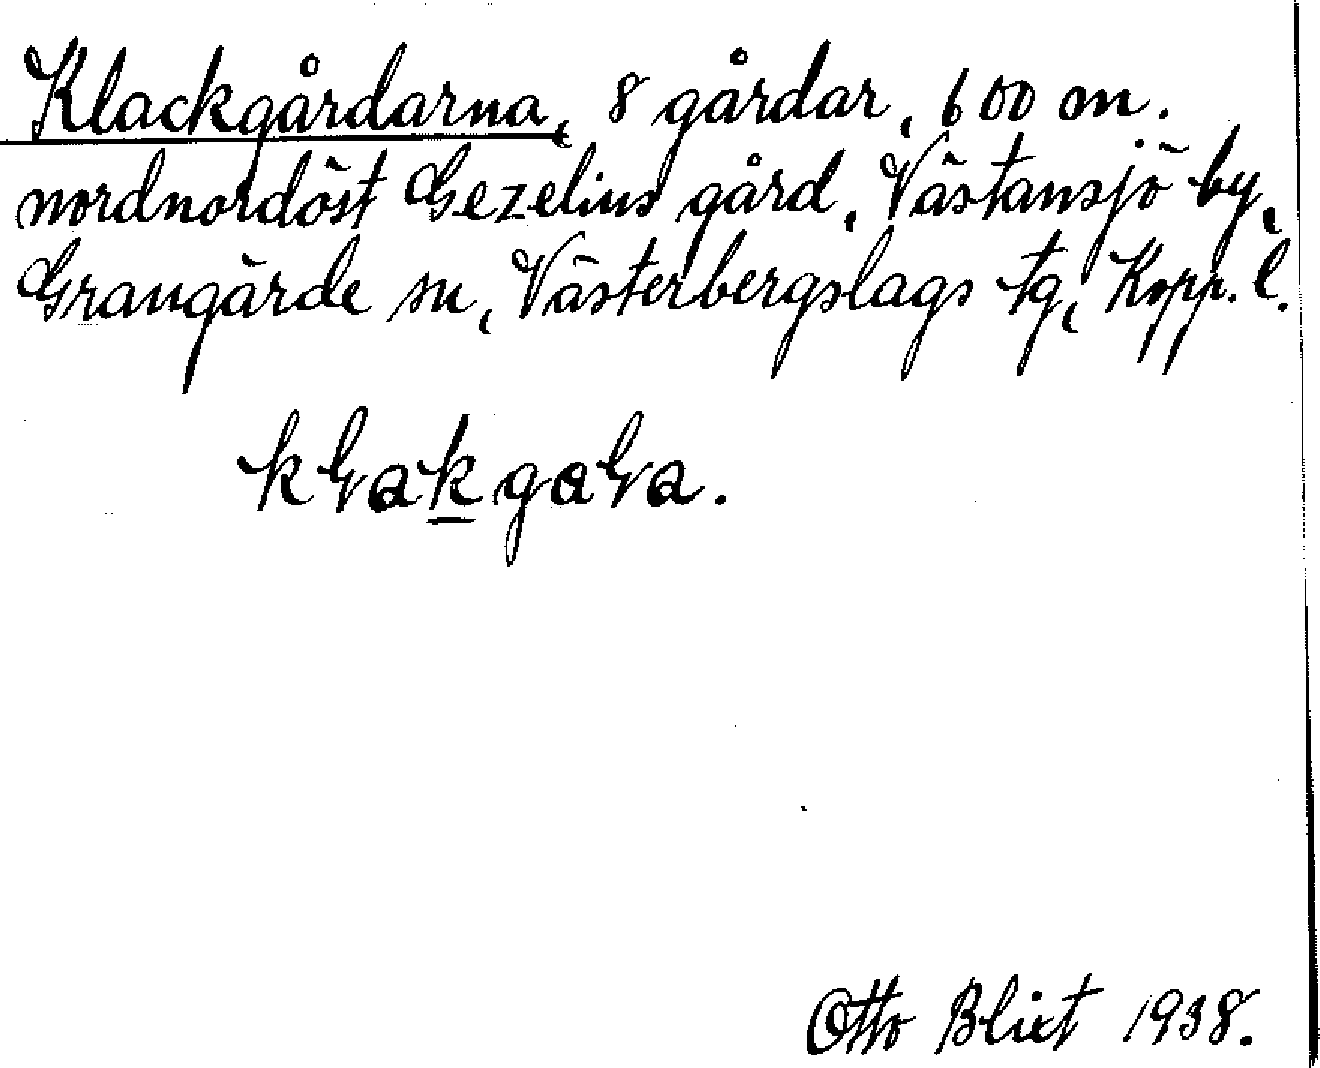 Klackgårdarna, 8 gårdar, 600 m.
nordnordöst Gezelius gård, Västansjö by,
Grangärde sn, Västerbergslags tg, Kopp. l.
Otto Blixt 1938.